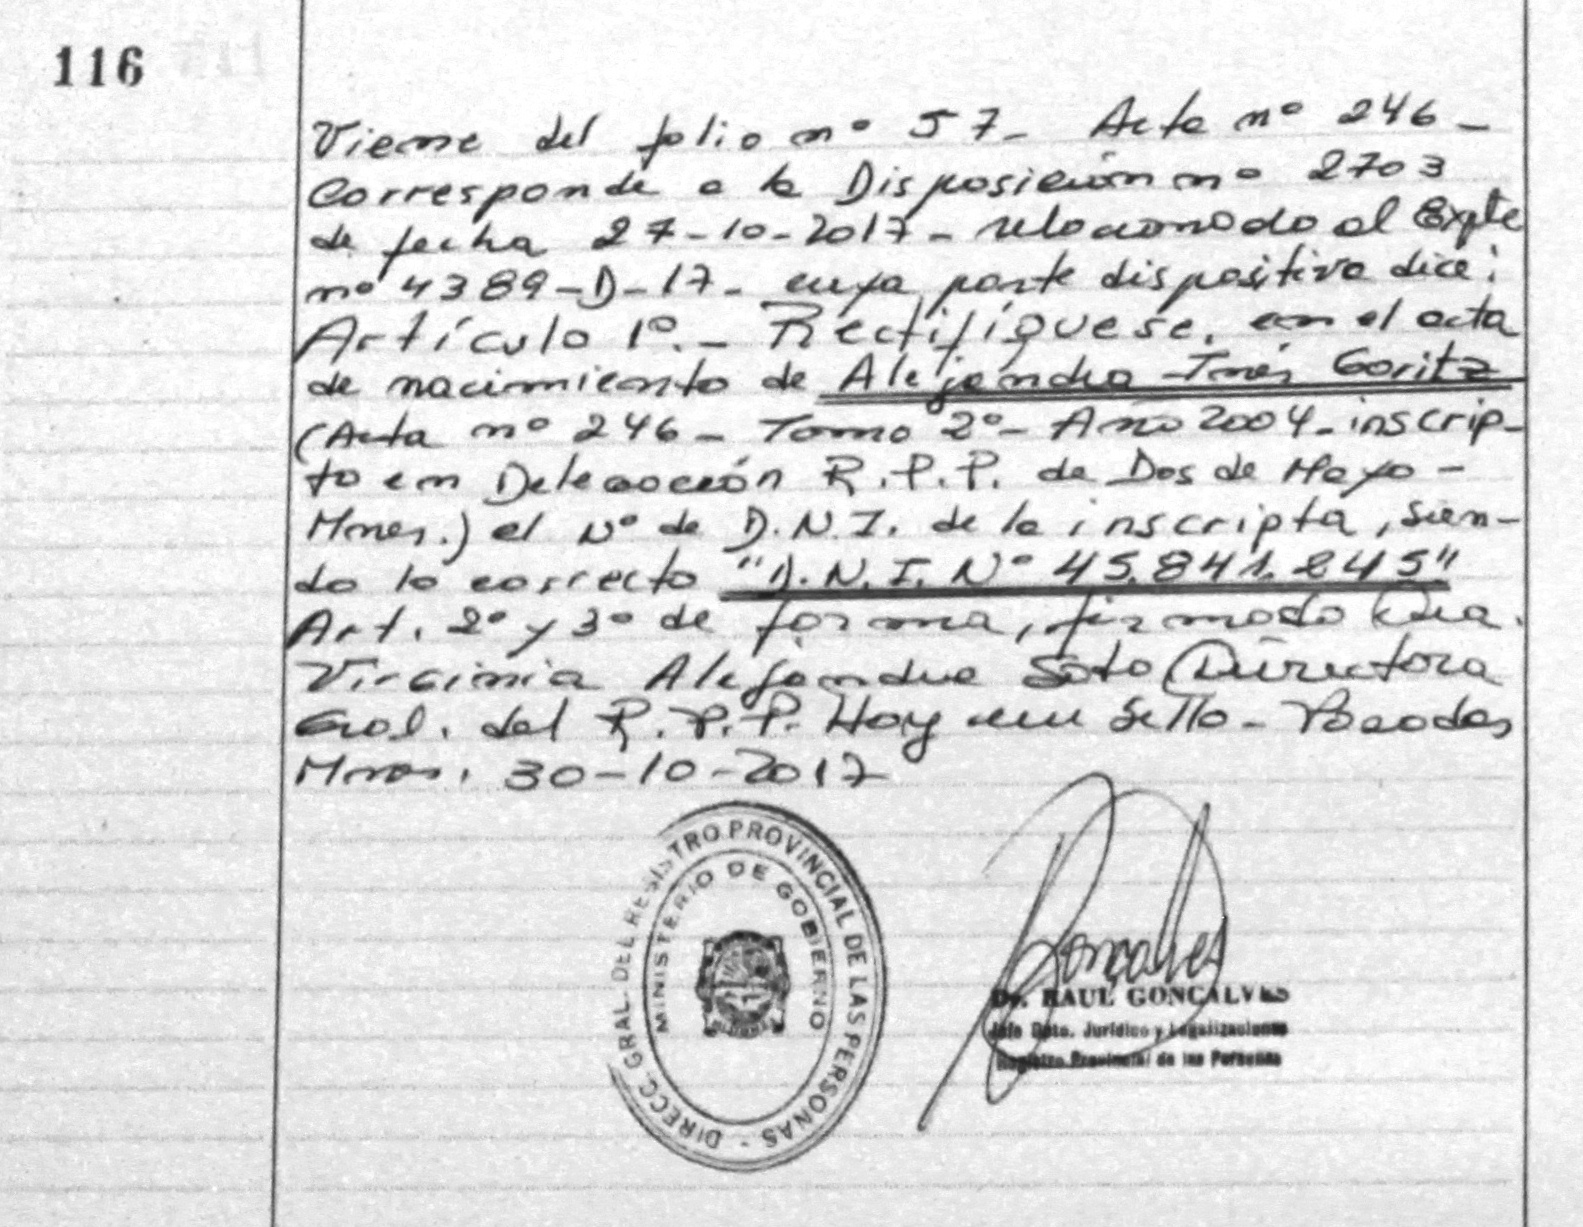 116
Viene del folio nº 57_ Acta nº 246_
Corresponde a la Disposición nº 2703
de fecha 27-10-2017_ relacionado al Expte
nº 4389-D-17_ cuya parte dispositiva dice:
Artículo 1º._ Rectifíquese, en el acta
de nacimiento de Alejandra Inés Goritz
(Acta nº 246_ Tomo 2º_ Año 2004_ inscrip-
to en Delegación R.P.P. de Dos de Mayo-
Mnes.) el Nº de D.N.I. de la inscripta, sien-
do lo correcto "D.N.I. Nº 45.841.245"
Art. 2º y 3º de forma, firmado Dra.
Virginia Alejandra Soto Directora
Gral. del R.P.P. Hay un sello_ Posadas
Mnes. 30-10-2017
DIRECC. GRAL. DEL REGISTRO PROVINCIAL DE LAS PERSONAS -
MINISTERIO DE GOBIERNO
Gonçalves
Dr. RAUL GONCALVES
Jefe Dpto. Jurídico y Legalizaciones
Registro Provincial de las Personas